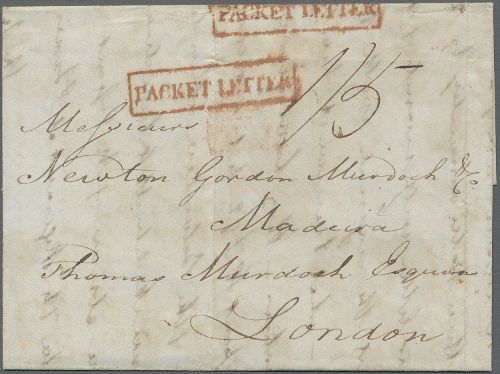 PACKET LETTER
PACKET LETTER
15
Messieurs
Newton Gordon Murdoch &C
Madeira
Thomas Murdoch Esquire
London